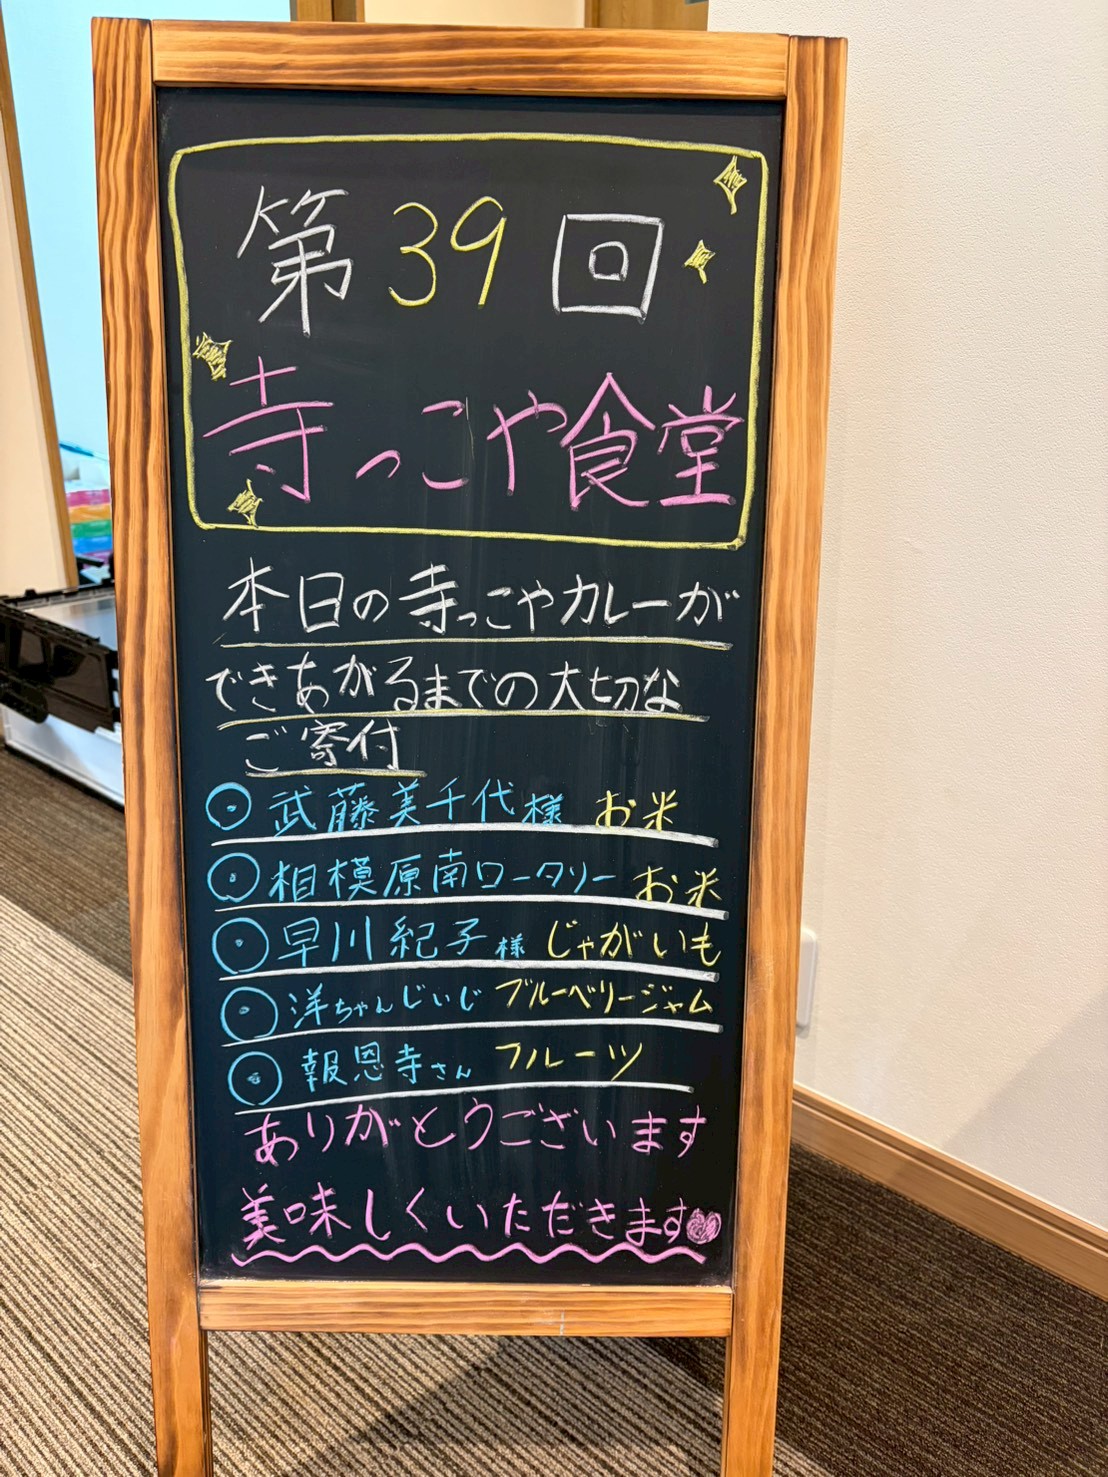 第39回
寺っこや食堂
本日の寺っこやカレーが
できあがるまでの大切な
ご寄付
◎武藤美千代様 お米
◎相模原南ロータリー お米
◎早川紀子様 じゃがいも
◎洋ちゃんじいじ ブルーベリージャム
◎報恩寺さん フルーツ
ありがとうございます
美味しくいただきます